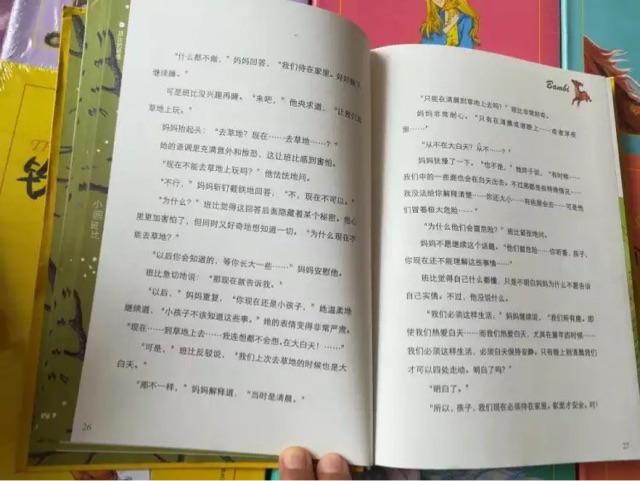 小鹿班比
"什么都不做，"妈妈回答，"我们待在家里。好好睡下
继续睡。"
可是班比没兴趣再睡。"来吧，"他央求道，"让我们去
草地上玩。"
妈妈抬起头："去草地？现在……去草地……？"
她的语调里充满意外和惊恐，这让班比感到害怕。
"现在不能去草地上玩吗？"他怯怯地问。
"不行，"妈妈斩钉截铁地回答，"不，现在不可以。"
"为什么？"班比觉得这回答后面隐藏着某个秘密。他心
里更加害怕了，但同时又好奇地想知道一切。"为什么现在不
能去草地？"
"以后你会知道的，等你长大一些……"妈妈安慰他。
班比急切地说："那现在就告诉我。"
"以后，"妈妈重复，"你现在还是小孩子，"她温柔地
继续道，"小孩子不该知道这些事。"她的表情变得非常严肃。
"现在……到草地上去……我连想都不会想。在大白天！……"
"可是，"班比反驳说，"我们上次去草地的时候也是大
白天。"
"那不一样，"妈妈解释道，"当时是清晨。
26
Bambi
"只能在清晨到草地上去吗？"班比非常好奇。
妈妈非常耐心。"只有在清晨或傍晚上……或者深夜
里……"
"从不在大白天？从不……？"
妈妈犹豫了一下。"也不是，"她终于说，"有时候……
我们中的一些鹿也会在白天出去。不过那都是些特殊情况……
我没法给你解释清楚……你还太小……有些鹿会去……可是他
们冒着极大危险……"
"为什么他们会冒危险？"班比紧张地问。
妈妈不愿继续这个话题。"他们冒危险……你听着，孩子，
你现在还不能理解这些事情……"
班比觉得自己什么都懂，只是不明白妈妈为什么不愿告诉
自己实情。不过，他没说什么。
"我们必须这样生活，"妈妈继续说，"我们所有鹿。即
使我们热爱白天……而我们热爱白天，尤其在童年的时候……
我们必须这样生活，必须白天保持安静。只有晚上到清晨我们
才可以四处走动。明白了吗？"
"明白了。"
"所以，孩子，我们现在必须待在家里。家里才安全。对！
27